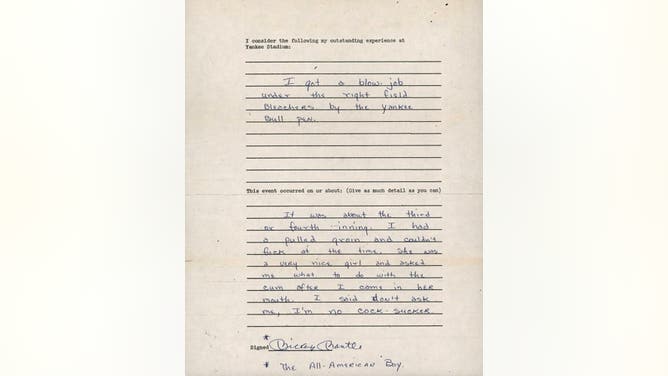 I consider the following my outstanding experience at
Yankee Stadium:
I got a blow-job
under the right field
Bleachers by the Yankee
Bull pen.
This event occurred on or about: (Give as much detail as you can)
It was about the third
or fourth inning. I had
a pulled groin and couldn't
fuck at the time. She was
a very nice girl and asked
me what to do with the
cum after I come in her
mouth. I said don't ask
me, I'm no cock-sucker
Signed Mickey Mantle
* The All-American Boy.